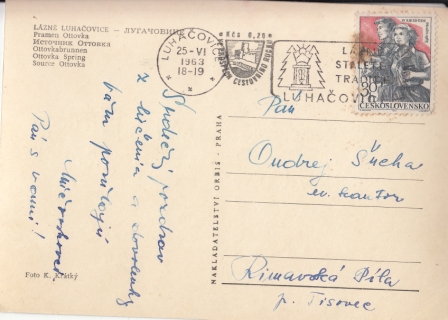 LÁZNĚ LUHAČOVICE – ЛУГАЧОВИЦЕ
Pramen Ottovka
Источник Оттовка
Ottovkabrunnen
Ottovka Spring
Source Ottovka
LUHAČOVICE
25-VI
1963
18-19
Kčs 0,20
CESTOVNÍHO RUCHU
LÁZNĚ
STALETÉ
TRADICE
LUHAČOVICE
30
ČESKOSLOVENSKO
Srdečný pozdrav
z liečenia a dovolenky
Vám posielajú
Pán s vami!
Pán
Ondrej Šucha
ev. kantor
Rimavská Píla
p. Tisovec
NAKLADATELSTVÍ ORBIS - PRAHA
Foto K. Krátký